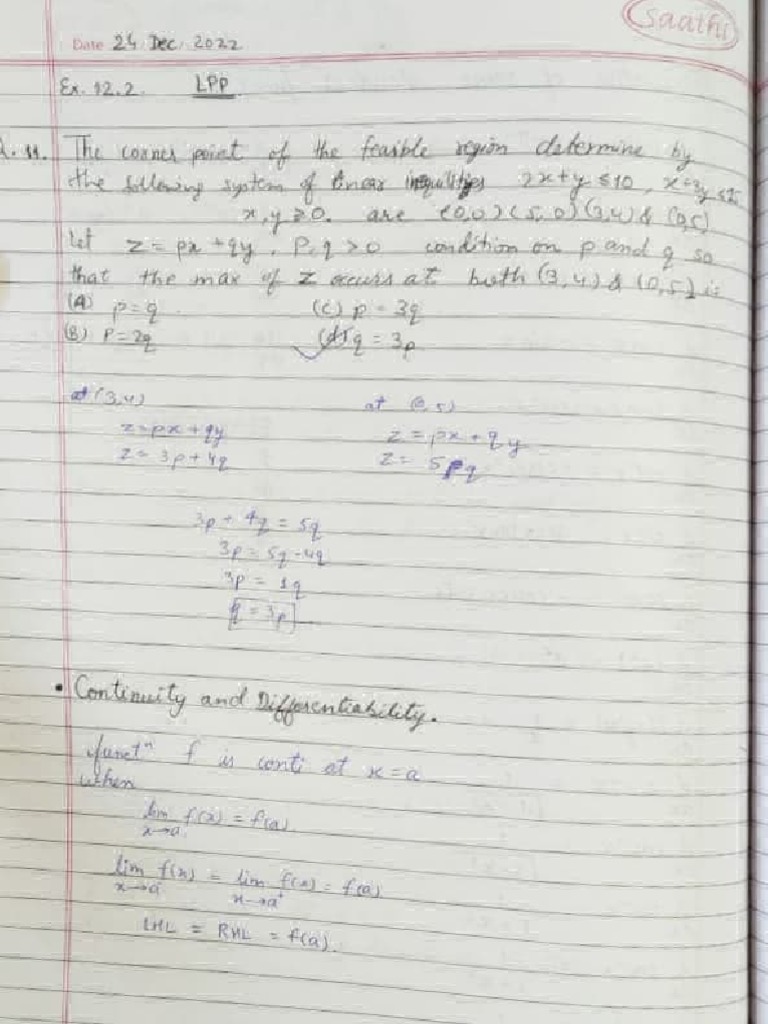 Saathi
Date 24 Dec. 2022
Ex. 12.2. LPP
Q.11. The corner point of the feasible region determine by
the following system of linear inequlities 2x+y ≤ 10, x+3y ≤ 15
x, y ≥ 0. are (0,0) (5,0) (3,4) & (0,5)
Let z = px + qy, P, q > 0 condition on p and q so
that the max of z occurs at both (3,4) & (0,5) is
(A) p = q (C) p = 3q
(B) P = 2q (d) q = 3p
at (3,4) at (0,5)
z = px + qy z = px + qy
z = 3p + 4q z = 5q
3p + 4q = 5q
3p = 5q - 4q
3p = 1q
q = 3p
• Continuity and Differentiability.
functⁿ f is conti at x = a
when
lim x→a f(x) = f(a)
lim x→a⁻ f(x) = lim x→a⁺ f(x) = f(a)
LHL = RHL = f(a)